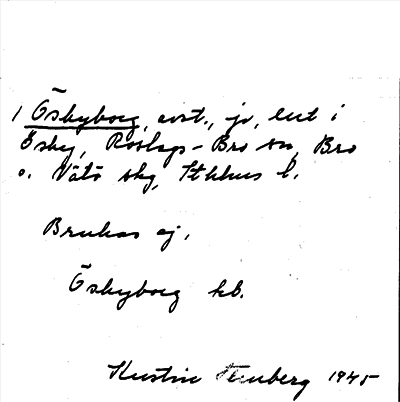 1 Ösbyborg, avst., jo, ent i
Ösby, Roslags-Bro sn, Bro
o. Vätö skg, Sthlms l.
Brukas ej.
Ösbyborg kb.
Kerstin Stenberg 1945